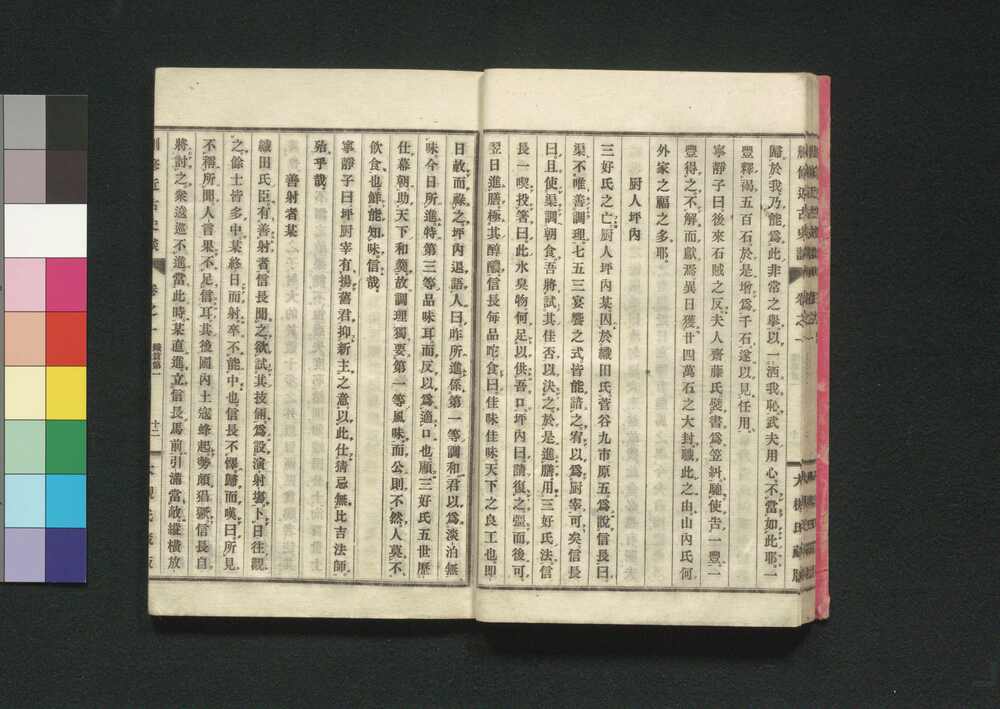 歸於我乃能爲此非常之擧以一洒我恥武夫用心不當如此耶一
豐釋褐五百石於是增爲千石遂以見任用
寧靜子曰後來石賊之反夫人齋藤氏裝書爲笠糾馳使告一豐一
豐得之不解而獻焉異日獲廿四萬石之大封職此之由山內氏何
外家之福之多耶
厨人坪內
三好氏之亡厨人坪內某囚於織田氏菅谷九市原五爲說信長曰
渠不唯善調理七五三宴饗之式皆能諳之宥以爲厨宰可矣信長
曰且使渠調朝食吾將試其佳否以決之於是進膳用三好氏法信
長一喫投箸曰此氷臭物何足以供吾口坪內曰請復之亟而後可
翌日進膳極其醇醲信長每品咤食曰佳味佳味天下之良工也即
日赦而祿之坪內退語人曰昨所進係第一等調和君以爲淡泊無
味今日所進特第三等品味耳而反以爲適口也顧三好氏五世歷
仕幕朝助天下和羹故調理獨要第一等風味而公則不然人莫不
飲食也鮮能知味信哉
寧靜子曰坪厨宰有揚舊君抑新主之意以此仕猜忌無比吉法師
殆乎哉
善射者某
織田氏臣有善射者信長聞之欲試其技倆爲設演射塲下日往觀
之餘士皆多中某終日而射卒不能中也信長不懌歸而嘆曰所見
不稱所聞人言果不足信耳其後國內土寇蜂起勢頗猖獗信長自
將討之衆逡巡不進當此時某直進立信長馬前引滿當敵縱橫放
近古史談 卷之一 織篇第一 十二